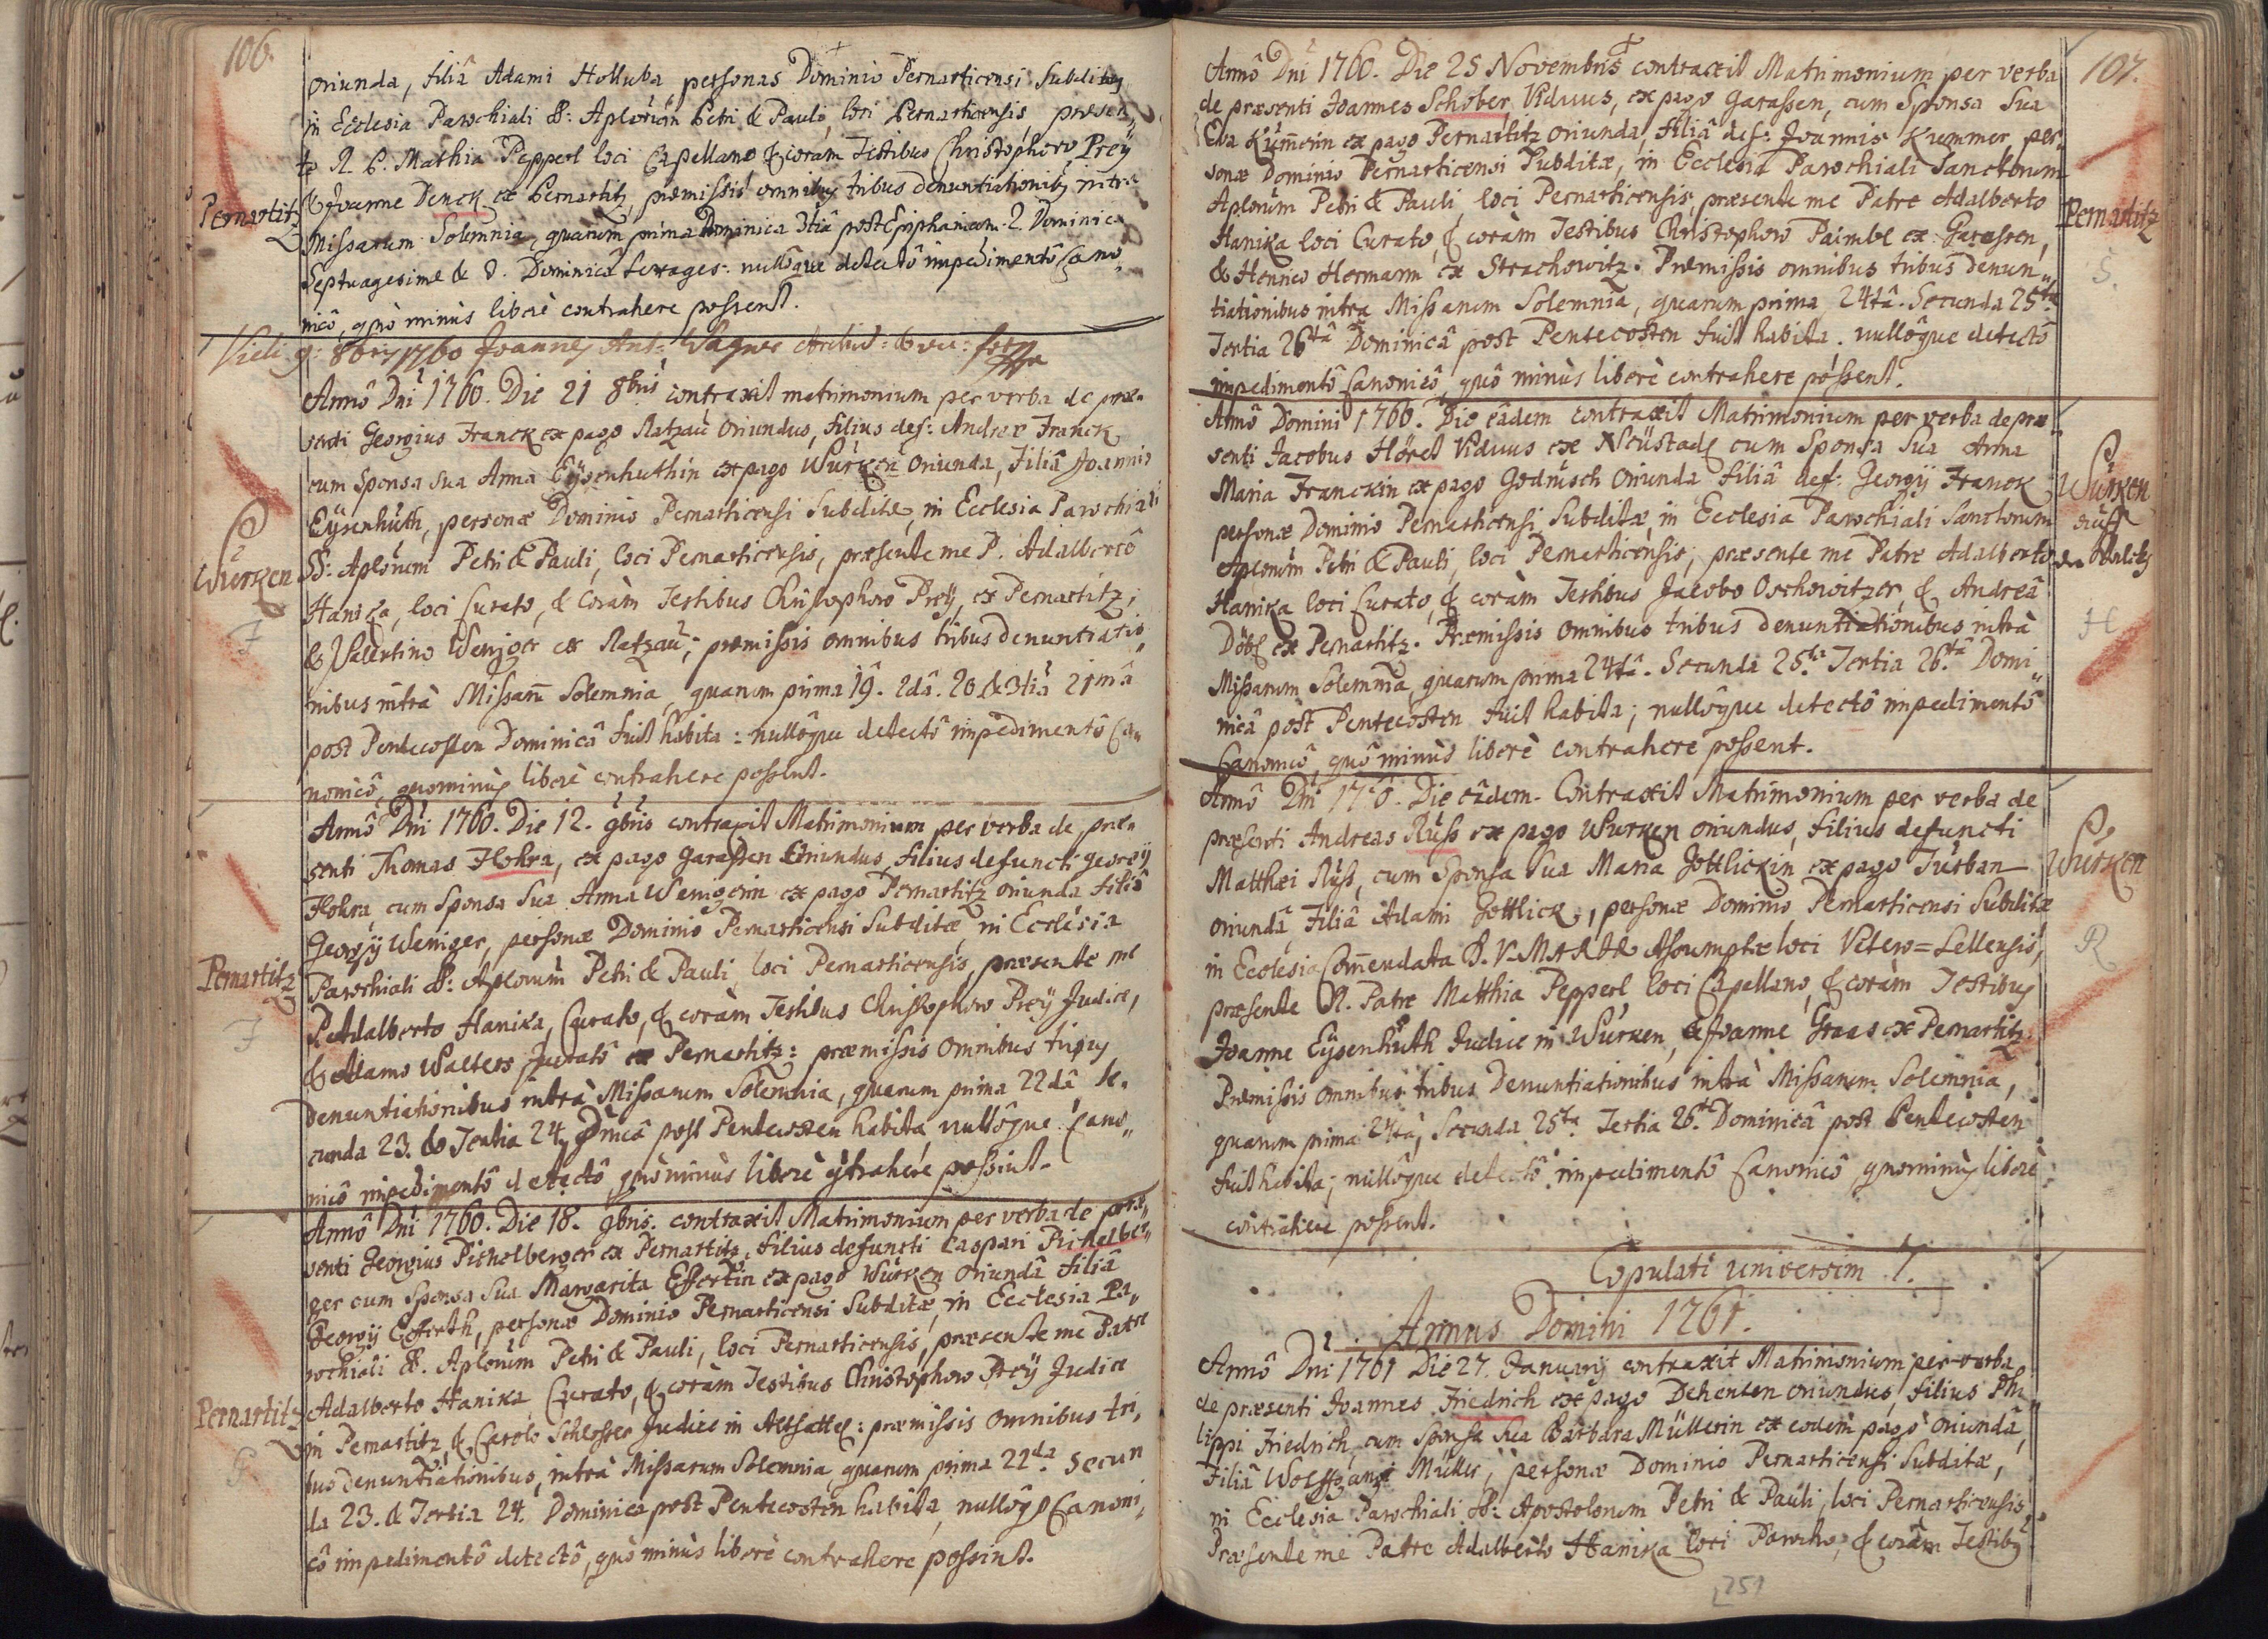 106.
oriunda, filiâ Adami Holluba, personas Dominio Pernarticensi Subditas
in Ecclesia Parochiali SS: Aplorum Petri & Pauli, loci Pernarticensis, præsen„
te R. P. Mathia Pepperl loci Capellano & coram Testibus Christophoro Preÿ
& Joanne Denck ex Pernartitz, præmissis omnibus tribus denuntiationibus intra
Pernartitz
Missarum Solemnia, quarum prima Dominica 3tiâ post Epiphaniam. 2. Dominica
Septuagesimæ & 3. Dominicâ Sexages: nullôque detectô impedimentô Cano„
nicô, quò minùs liberè contrahere possent.
Vidi 9: 8bris 1760 Joannes Ant: Wagner
Annô Dni 1760. Die 21 8bris contraxit matrimonium per verba de præ„
senti Georgius Franck ex pago Ratzau oriundus, filius def: Andreæ Franck
cum Sponsa sua Anna Eÿsenhuthin ex pago Wurken oriunda, Filiâ Joannis
Eÿsenhuth, personæ Dominio Pernarticensi Subditæ, in Ecclesia Parochiali
Wurken
SS: Aplorum Petri & Pauli, loci Pernarticensis, præsente me P. Adalbertô
Hanika, loci Curato, & Coràm Testibus Christophoro Preÿ, ex Pernartitz,
F
& Valentino Weniger ex Ratzau; præmissis omnibus tribus denuntiatio„
nibus intrà Missarum Solemnia, quarum prima 19. 2dâ. 20. & 3tia 21mâ
post Pentecosten Dominicâ fuit habita: nullôque detectô impedimentô Ca„
nonicô, quominùs liberè contrahere possent.
Annô Dni 1760. Die 12. 9bris contraxit Matrimonium per verba de præ„
senti Thomas Hokra, ex pago Garassen Oriundus, filius defuncti Georgÿ
Hokra, cum Sponsa sua Anna Wenigerin ex pago Pernartitz oriunda filiâ
Georgÿ Weniger, personæ Dominio Pernarticensi Subditæ, in Ecclesia
Pernartitz
Parochiali SS: Aplorum Petri & Pauli, loci Pernarticensis, præsente me
P. Adalberto Hanika, Curato, & coràm Testibus Christophoro Preÿ Judice,
& Adamo Walters Juratô ex Pernartitz: præmissis omnibus tribus
denuntiationibus intrà Missarum Solemnia, quarum prima 22dâ, se„
cunda 23. & Tertia 24. Dnicâ post Pentecosten habita, nullôque Cano„
nicô impedimentô detectô, quò minùs liberè contrahere possint.
Annô Dni 1760. Die 18. 9bris. contraxit Matrimonium per verba de præ„
senti Georgius Pichelberger ex Pernartitz, filius defuncti Caspari Pichelber„
ger cum Sponsa sua Margarita Effertin ex pago Wurken oriundâ filiâ
Georgÿ Efferth, personæ Dominio Pernarticensi Subditæ, in Ecclesia Pa„
rochiali SS. Aplorum Petri & Pauli, loci Pernarticensis, præsente me Patre
Pernartitz
Adalberto Hanika, Curato, & coràm Testibus Christophoro Preÿ Judice
in Pernartitz, & Carolo Schlosser Judice in Altsattel: præmissis omnibus tri„
bus denuntiationibus, intrà Missarum Solemnia, quarum prima 22da. Secun
da 23. & Tertia 24. Dominica post Pentecosten habita, nullôq Canoni„
cô impedimentô detectô, quò minùs liberè contrahere possint.
107.
Annô Dni 1760. Die 25 Novembris contraxit Matrimonium per verba
de præsenti Joannes Schober, Viduus, ex pago Garassen, cum Sponsa sua
Eva Kummerin ex pago Pernartitz oriunda, filiâ def: Joannis Kummer, per„
sonæ Dominio Pernarticensi Subditæ, in Ecclesia Parochiali Sanctorum
Aplorum Petri & Pauli, loci Pernarticensis, præsente me Patre Adalberto
Pernartitz
Hanika loci Curato, & coràm Testibus Christophoro Paimbl ex Garassen,
& Henrico Hermann ex Strachowitz. Præmissis omnibus tribus denun„
S.
tiationibus intra Missarum Solemnia, quarum prima 24tâ. Secunda 25ta.
Tertia 26tâ Dominicâ post Pentecosten fuit habita. nullôque detectô
impedimentô Canonicô, quô minùs liberè contrahere possent.
Annô Domini 1760. Die eâdem contraxit Matrimonium per verba de præ
senti Jacobus Höret Viduus ex Neüstadl cum Sponsa sua Anna
Maria Franckin ex pago Godrusch oriunda filiâ def: Georgÿ Franck
Wurken
personæ Dominio Pernarticensi Subditæ, in Ecclesia Parochiali Sanctorum
auff
Aplorum Petri & Pauli, loci Pernarticensis; præsente me Patre Adalberto
Hanika loci Curato, & coràm Testibus Jacobo Oschowitzer, & Andreâ
Döbl ex Pernartitz. Præmissis omnibus tribus denuntiationibus intrà
H
Missarum Solemnia, quarum prima 24tâ. Secunda 25.ta Tertia 26.tâ Domi„
nicâ post Pentecosten fuit habita; nullôque detectô impedimentô
Canonicô, quô minùs liberè contrahere possent.
Annô Dni 1760. Die eâdem. Contraxit Matrimonium per verba de
præsenti Andreas Russ ex pago Wurken oriundus, filius defuncti
Matthæi Russ, cum Sponsa sua Maria Gottlickin ex pago Turban
Wurken
oriundâ, Filiâ Adami Gottlick, personæ Dominio Pernarticensi Subditæ
R
in Ecclesia Comendata B. V. MARIÆ Assumptæ loci Vetero=Cellensis,
præsente R. Patre Matthia Pepperl loci Capellano, & coràm Testibus
Joanne Eÿsenhuth Judice in Wurken, & Joanne Graas ex Pernartitz.
Præmissis omnibus tribus Denuntiationibus intrà Missarum Solemnia,
quarum prima 24tâ, Secunda 25ta. Tertia 26.tâ Dominicâ post Pentecosten
fuit habita; nullôque detectô impedimentô Canonicô quominùs liberè
contrahere possent.
Copulati universim 7.
Annus Domini 1761.
Annô Dni 1761 Die 27. Januarij contraxit Matrimonium per verba
de præsenti Joannes Friedrich ex pago Dehenten oriundus, filius Phi„
lippi Friedrich, cum Sponsa sua Barbara Müllerin ex eodem pago oriundâ,
Filiâ Wolffgangi Müller, personæ Dominio Pernarticensi Subditæ,
in Ecclesia Parochiali SS: Apostolorum Petri & Pauli, loci Pernarticensis,
Præsente me Patre Adalberto Hanika loci Parocho, & coràm Testibus
251